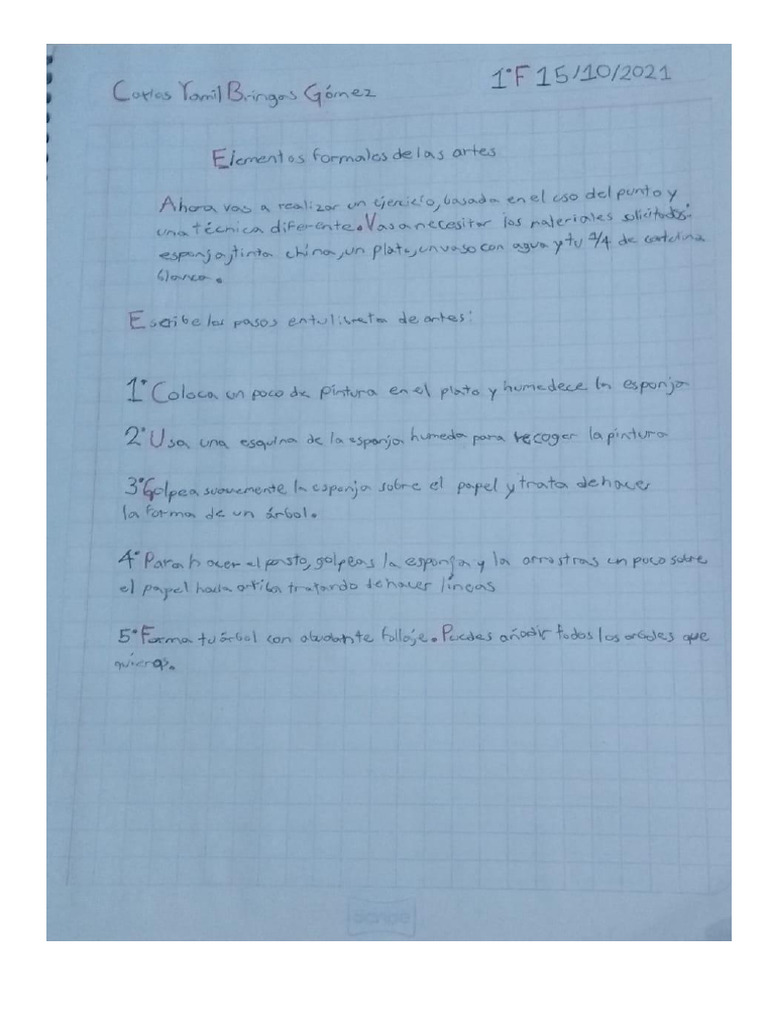 Carlos Yamil Bringas Gómez
1°F 15/10/2021
Elementos formales de las artes
Ahora vas a realizar un ejercicio, basada en el uso del punto y
una técnica diferente. Vas a necesitar los materiales solicitados:
esponja, tinta china, un plato, un vaso con agua y tu 1/4 de cartulina
blanca.
Escribe los pasos en tu libreta de artes:
1° Coloca un poco de pintura en el plato y humedece la esponja
2° Usa una esquina de la esponja humeda para recoger la pintura
3° Golpea suavemente la esponja sobre el papel y trata de hacer
la forma de un árbol.
4° Para hacer el pasto, golpeas la esponja y la arrastras un poco sobre
el papel hacia arriba tratando de hacer líneas
5° Forma tu árbol con abudante follaje. Puedes añadir todos los árboles que
quieras.